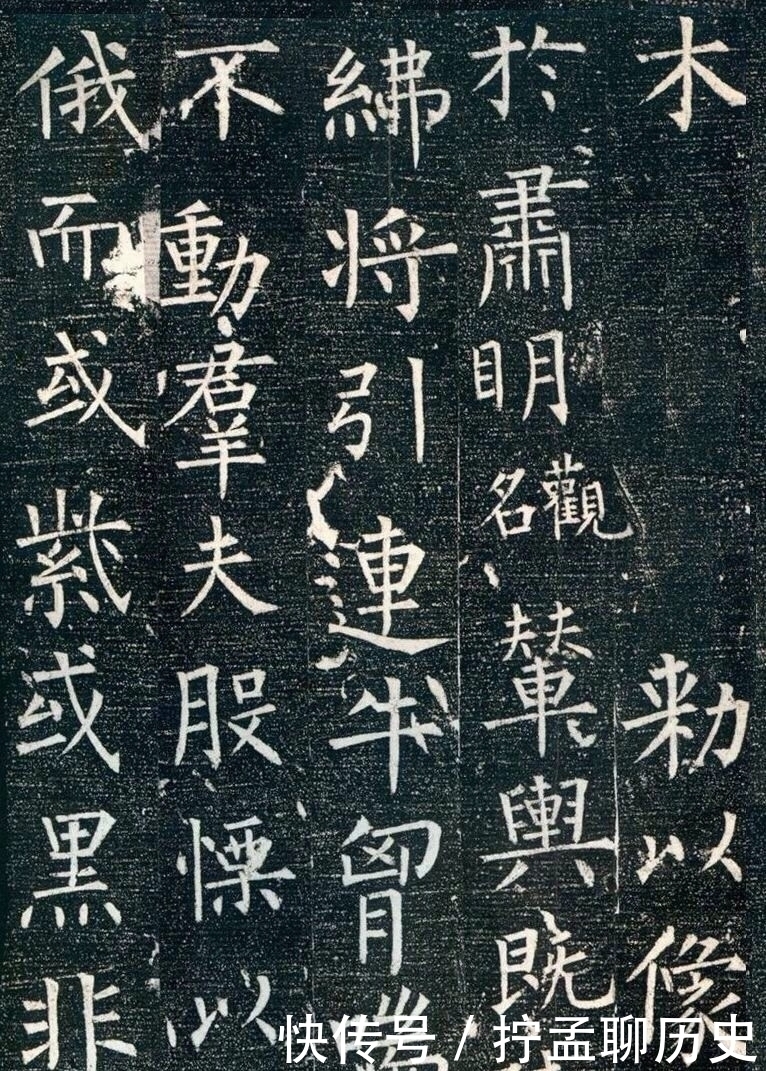 木 敕以像
於肅明觀名輦輿既
紼将引連牛胷
不動羣夫股慄以
俄而或紫或黑非
快传号 / 拧孟聊历史